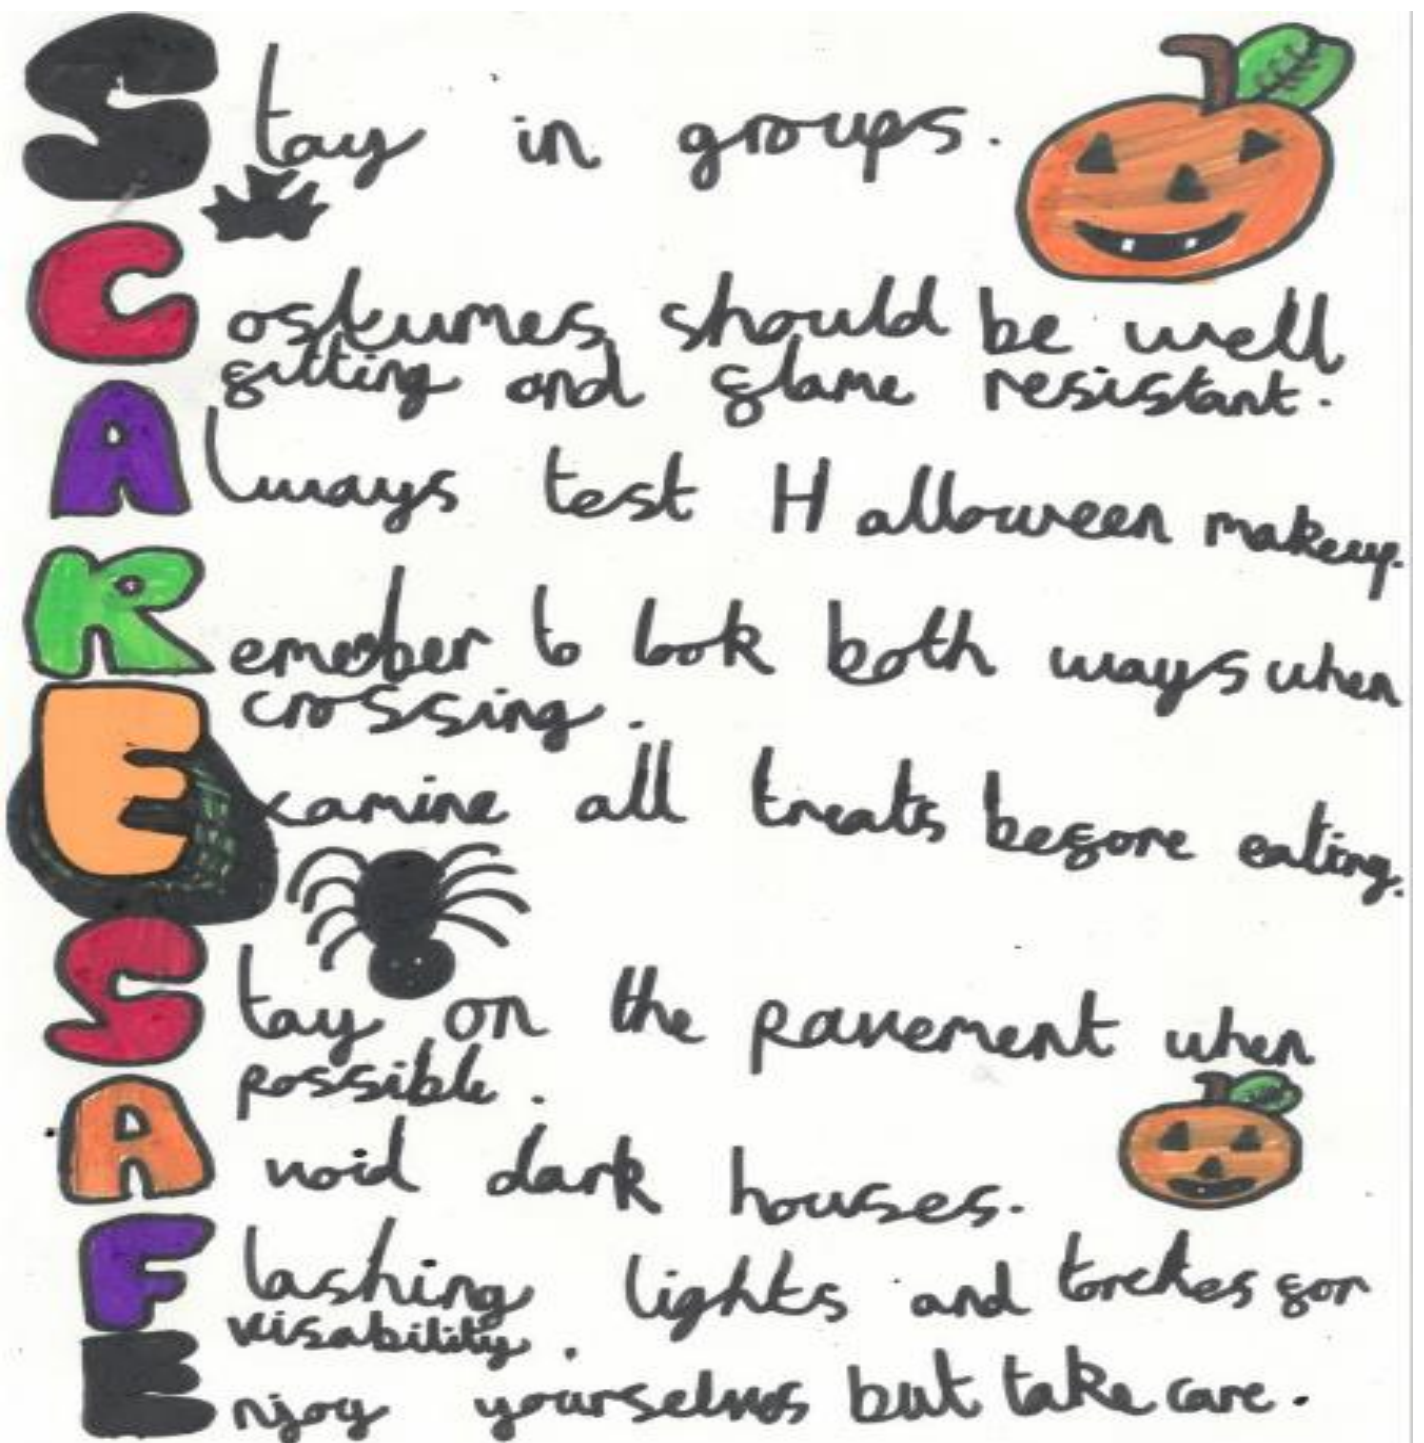 Stay in groups.
Costumes should be well
fitting and flame resistant.
Always test Halloween makeup.
Remember to look both ways when
crossing.
Examine all treats before eating.
Stay on the pavement when
possible.
Avoid dark houses.
Flashing lights and torches for
visability.
Enjoy yourselves but take care.